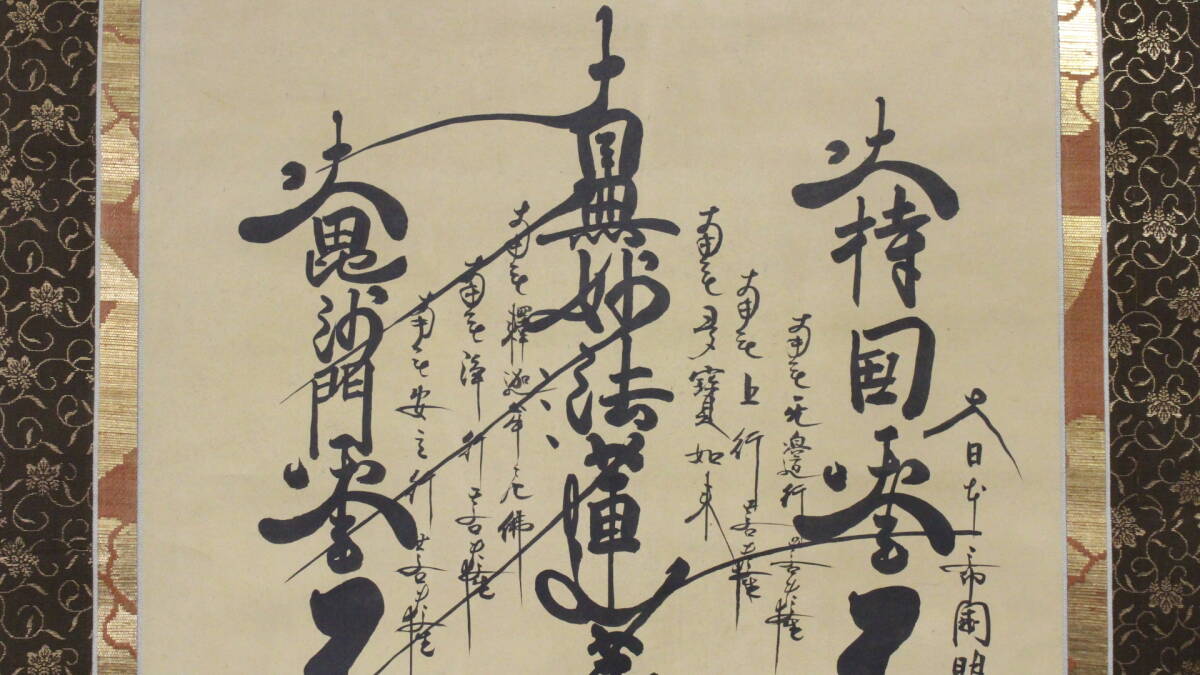 大日本帝國明
大持国天王
南無无邊行菩薩
南無上行菩薩
南無多寳如来
南無妙法蓮華
南無釋迦牟尼佛
南無浄行菩薩
南無安立行菩薩
大毘沙門天王